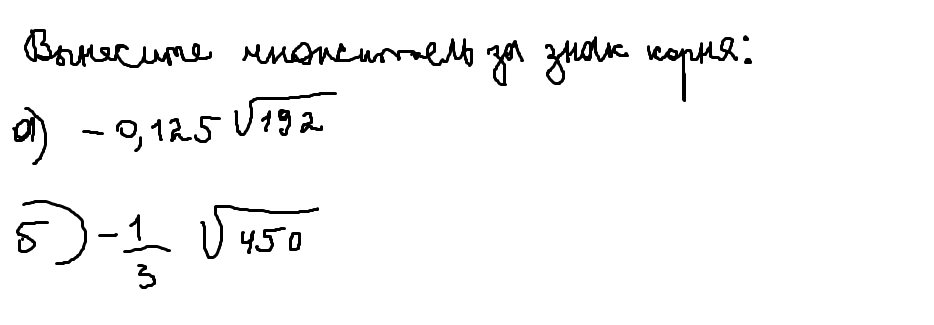 Вынесите множитель за знак корня:
а) - 0,125 √192
б) - 1/3 √450